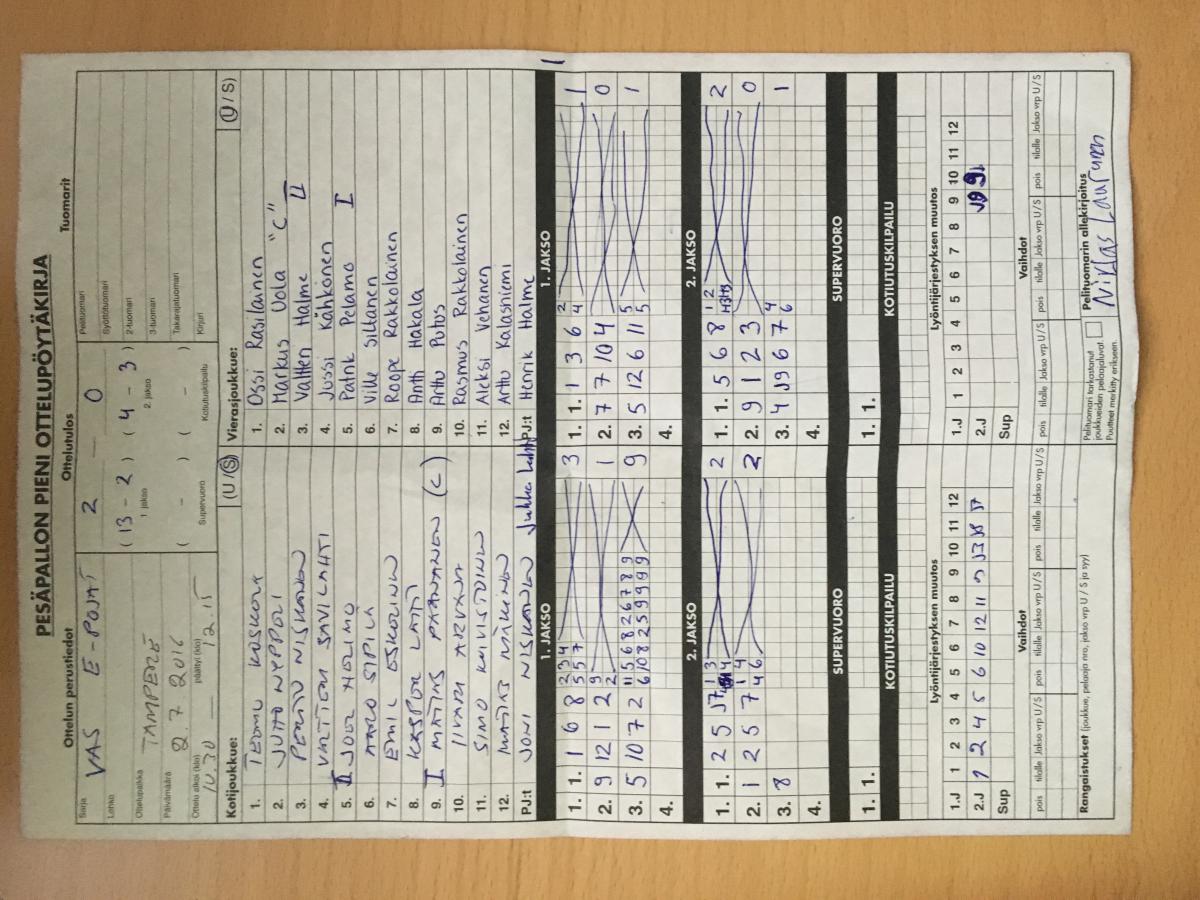 PESÄPALLON PIENI OTTELUPÖYTÄKIRJA
Ottelun perustiedot Ottelutulos Tuomarit
Sarja VAS E-POJAT 2 — 0 Pelituomari
Lohko Syöttötuomari
Ottelupaikka TAMPERE (13 - 2) (4 - 3) 2-tuomari
1. jakso 2. jakso 3-tuomari
Päivämäärä 2.7 2016 ( - ) ( - ) Takarajatuomari
Ottelu alkoi (klo) 10.30 päättyi (klo) 12.15 Supervuoro Kotiutuskilpailu Kirjuri
Kotijoukkue: (U / S) Vierasjoukkue: (U / S)
1. TEEMU KOSKELA 1. Ossi Rasilainen
2. JUHO NYPPELI 2. Markus Uola "C"
3. PENTTU NISKANEN 3. Valtteri Halme II
4. VALTTERI SAVILAHTI 4. Jussi Kähkönen
5. JOOA HELIMO 5. Patrik Pelamo I
6. AARO SIPILÄ 6. Ville Siltanen
7. EMIL ESKOLIN 7. Roope Rakkolainen
8. KASPER LAITI 8. Antti Hakala
9. MATIAS PAANANEN (C) 9. Arttu Potus
10. IIVARI ARVAJA 10. Rasmus Rakkolainen
11. SIMO KOIVISTOINEN 11. Aleksi Vehanen
12. MATIAS MÄKINEN 12. Arttu Kalasniemi
PJ:t JONI NISKANEN Jukka PJ:t Henrik Halme
1. JAKSO 1. JAKSO
1. 1. 1 6 8 3 1. 1. 1 3 6 1
2. 9 12 1 2 1 2. 7 7 10 4 0
3. 5 10 7 2 9 3. 5 12 6 11 1
4. 4.
2. JAKSO 2. JAKSO
1. 1. 2 5 2 1. 1. 5 6 8 2
2. 1 2 5 7 2 2. 9 1 2 3 0
3. 8 3. 4 9 6 7 1
4. 4.
SUPERVUORO SUPERVUORO
1. 1. 1. 1.
KOTIUTUSKILPAILU KOTIUTUSKILPAILU
Lyöntijärjestyksen muutos Lyöntijärjestyksen muutos
1 2 3 4 5 6 7 8 9 10 11 12 1 2 3 4 5 6 7 8 9 10 11 12
1.J 1.J
2.J 1 2 4 5 6 10 12 11 2.J
Sup Sup
Vaihdot Vaihdot
pois tilalle Jakso vrp U / S pois tilalle Jakso vrp U / S pois tilalle Jakso vrp U / S pois tilalle Jakso vrp U / S pois tilalle Jakso vrp U / S pois tilalle Jakso vrp U / S
Rangaistukset (joukkue, pelaaja nro, jakso vrp U / S ja syy)
Pelituomari tarkastanut joukkueiden pelaajaluvat. Puutteet merkitty erikseen.
Pelituomarin allekirjoitus
Niklas Laurunen